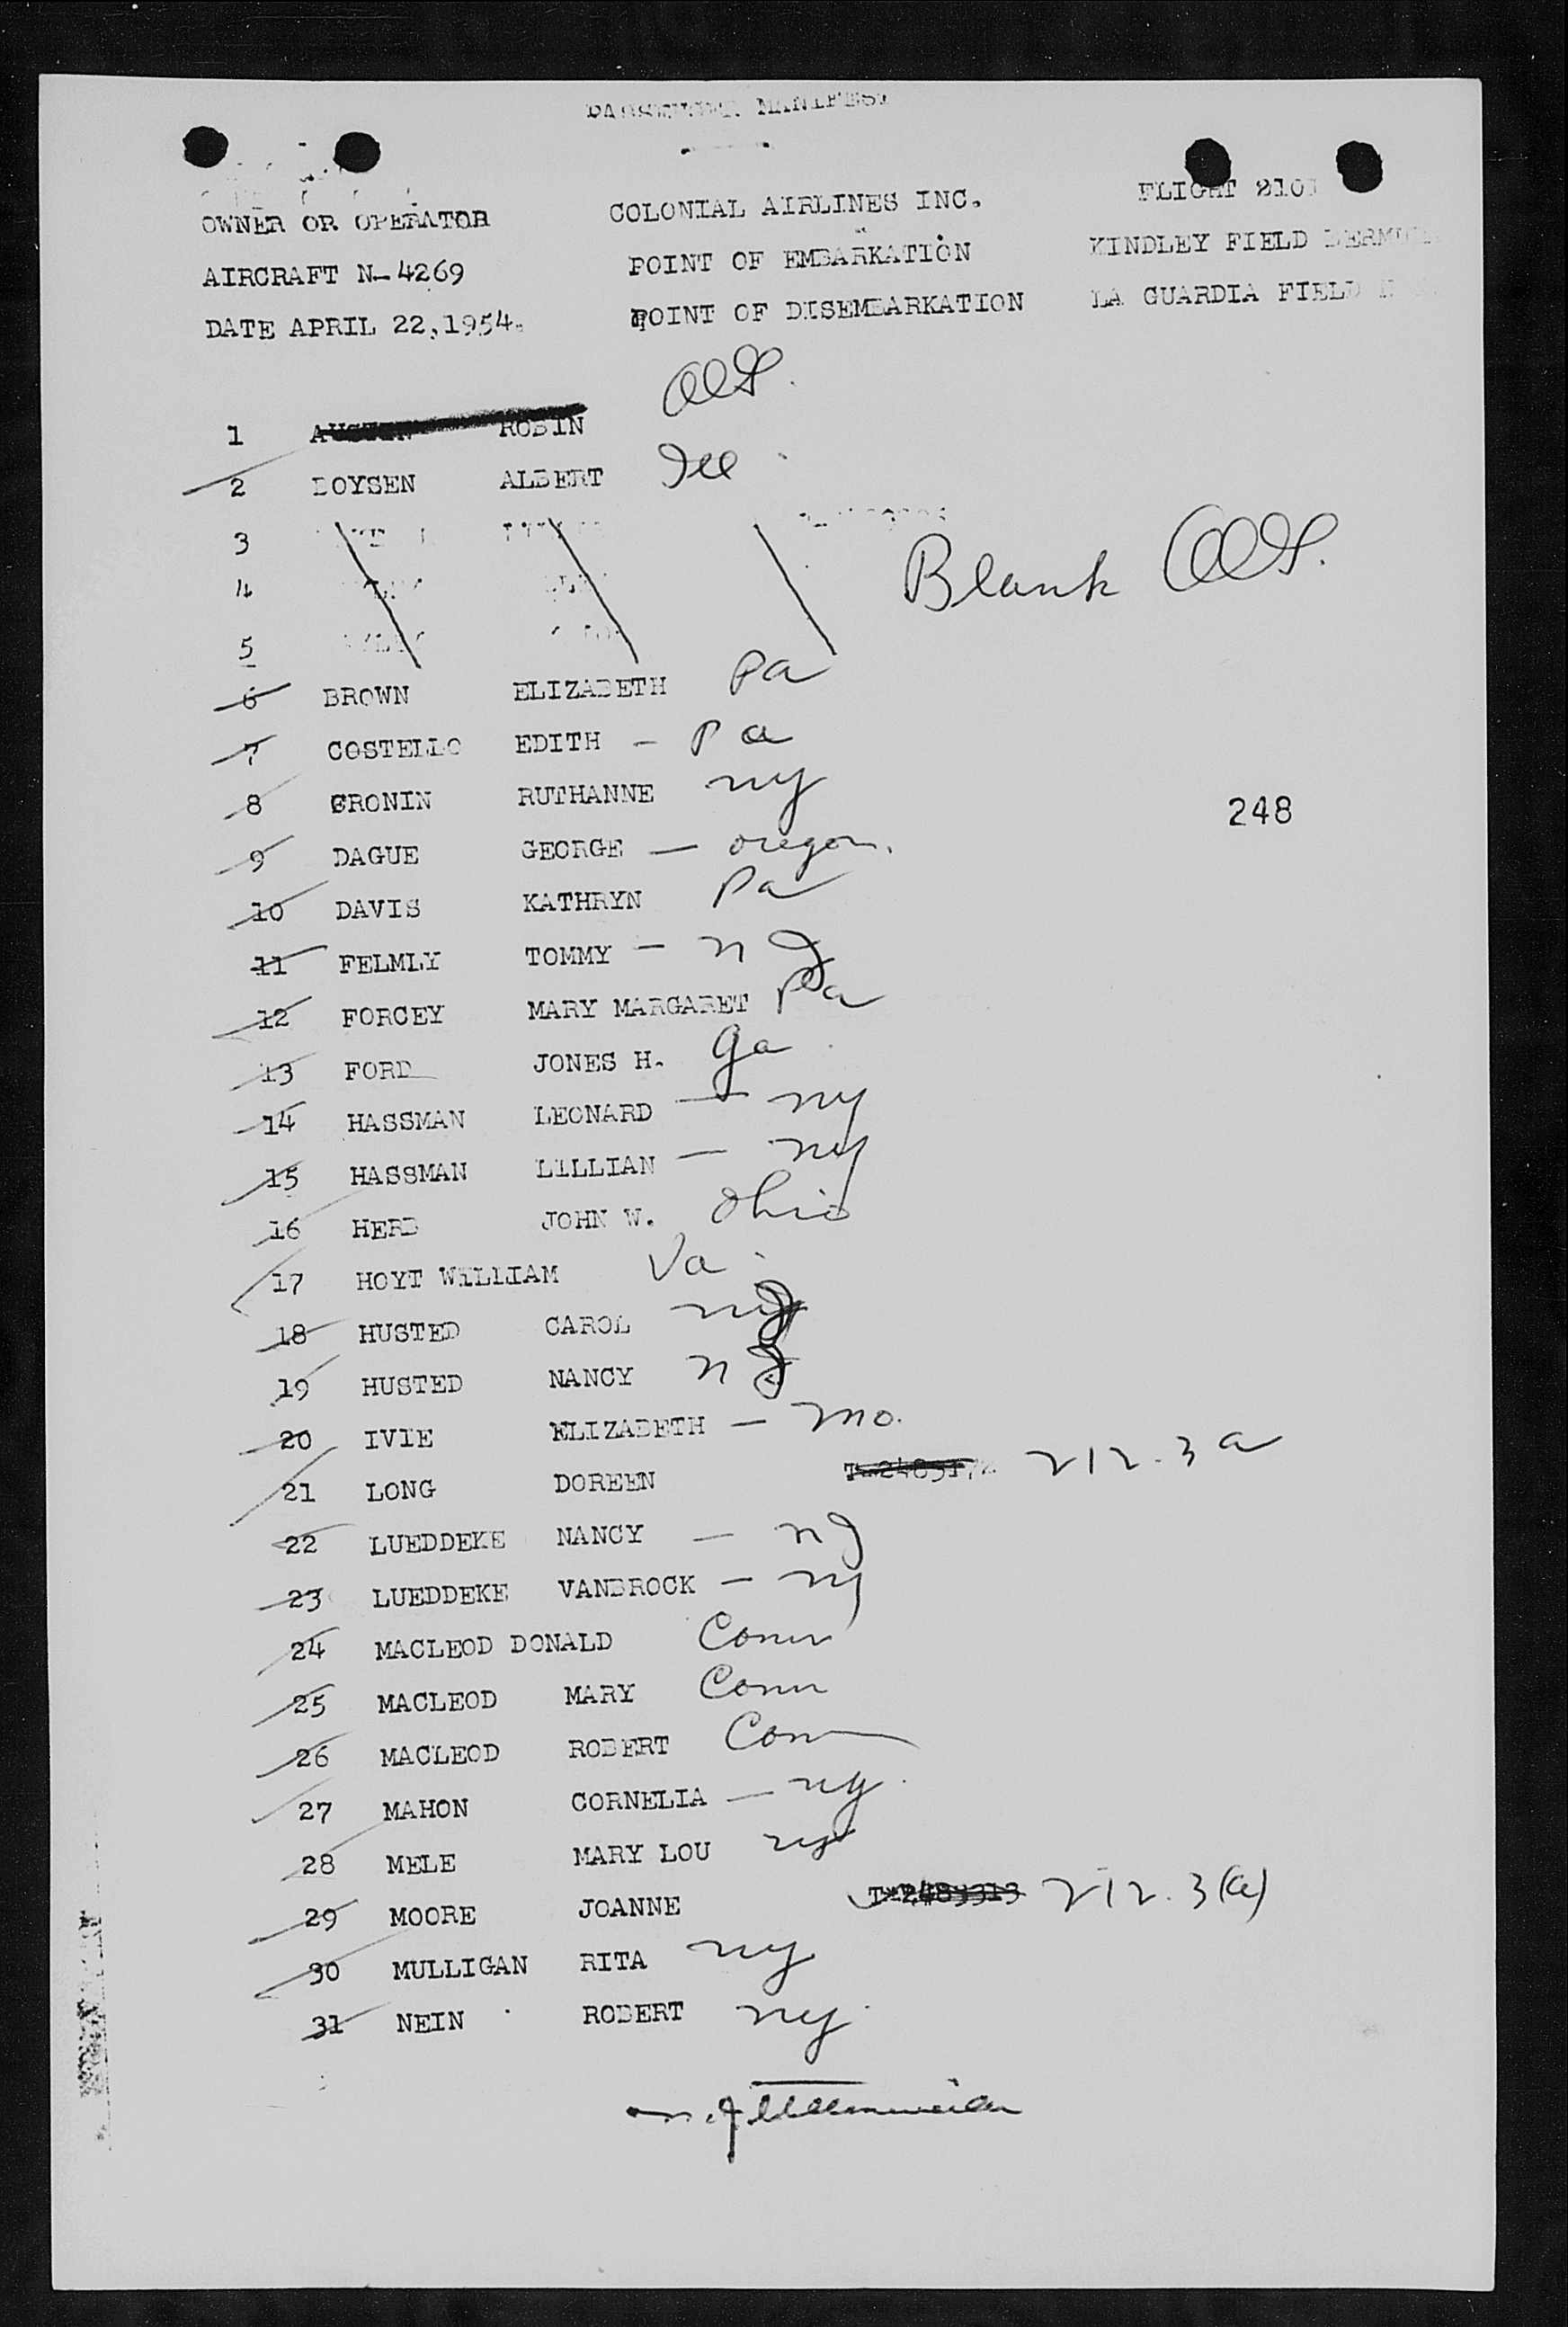 PASSENGER MANIFEST
OWNER OR OPERATOR COLONIAL AIRLINES INC. FLIGHT 210
AIRCRAFT N-4269 POINT OF EMBARKATION KINDLEY FIELD BERMUDA
DATE APRIL 22,1954. POINT OF DISEMBARKATION LA GUARDIA FIELD
1 ROBIN
2 BOYSEN ALBERT Ill
3
4 Blank
5
6 BROWN ELIZABETH Pa
7 COSTELLO EDITH - Pa
8 CRONIN RUTHANNE ny
248
9 DAGUE GEORGE - oregon.
10 DAVIS KATHRYN Pa
11 FELMLY TOMMY - n J
12 FORCEY MARY MARGARET Pa
13 FORD JONES H. Ga
14 HASSMAN LEONARD - ny
15 HASSMAN LILLIAN - ny
16 HERD JOHN W. Ohio
17 HOYT WILLIAM Va
18 HUSTED CAROL nJ
19 HUSTED NANCY n J
20 IVIE ELIZABETH - mo.
21 LONG DOREEN 212.3 a
22 LUEDDEKE NANCY - nJ
23 LUEDDEKE VANBROCK - nj
24 MACLEOD DONALD Conn
25 MACLEOD MARY Conn
26 MACLEOD ROBERT Conn
27 MAHON CORNELIA - ny.
28 MELE MARY LOU ny
29 MOORE JOANNE 212.3(a)
30 MULLIGAN RITA ny
31 NEIN ROBERT ny.